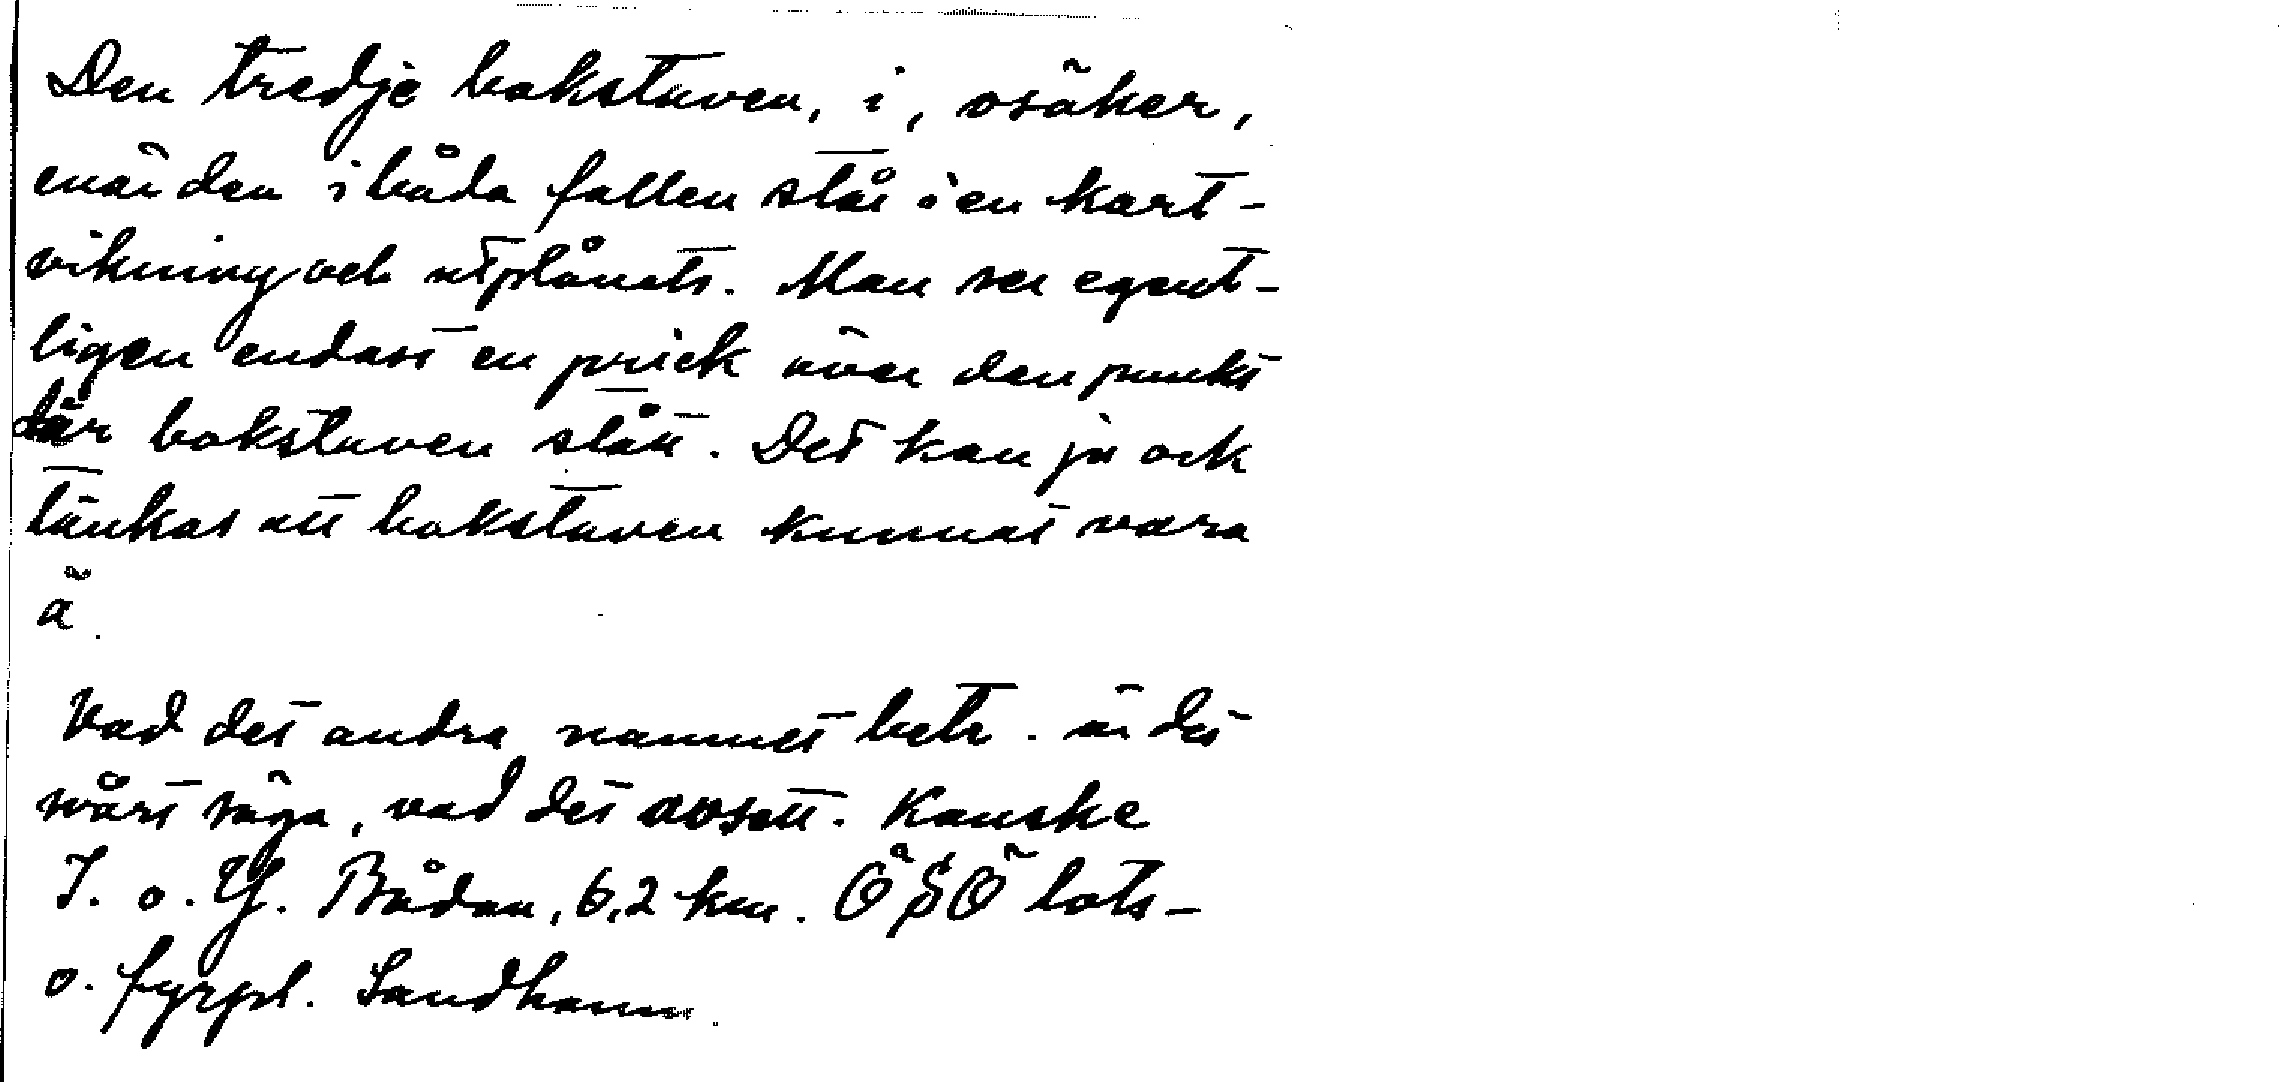 Den tredje bokstaven, i, osäker,
enär den i båda fallen står i en kart-
vikning och utplånats. Man ser egent-
ligen endast en prick över den punkt
där bokstaven stått. Det kan ju ock
tänkas att bokstaven kunnat vara
ä.
Vad det andra namnet betr. är det
svårt säga, vad det avsett. Kanske
I. o. Y. Bådan, 6,2 km. ÖSÖ lots-
o. fyrpl. Sandhamn.